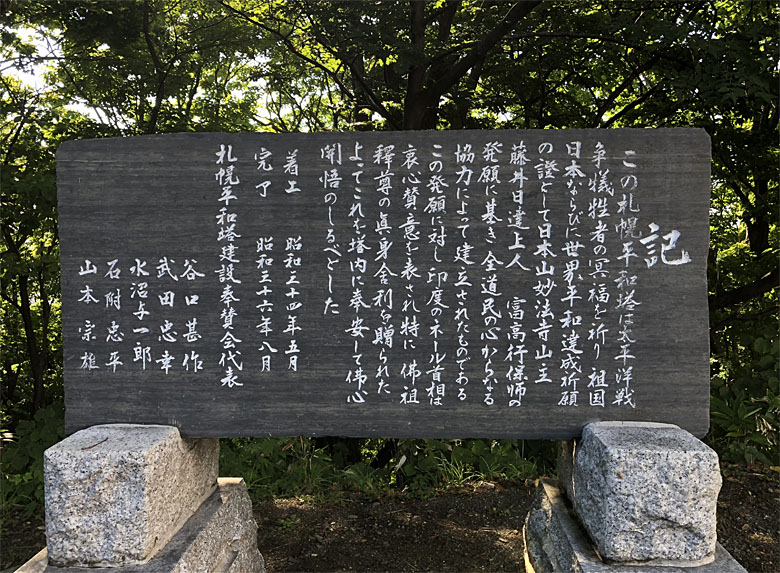 記
この札幌平和塔は太平洋戦
争犠牲者の冥福を祈り祖国
日本ならびに世界平和達成祈願
の證として日本山妙法寺山主
藤井日達上人 富高行保師の
発願に基き全道民の心からなる
協力によって建立されたものである
この発願に対し印度のネール首相は
衷心賛意を表され特に佛祖
釋尊の眞身舎利を贈られた
よってこれを塔内に奉安して佛心
開悟のしるべとした
着工 昭和三十四年五月
完了 昭和三十六年八月
札幌平和塔建設奉賛会代表
谷口甚作
武田忠幸
水沼与一郎
石附忠平
山本宗雄